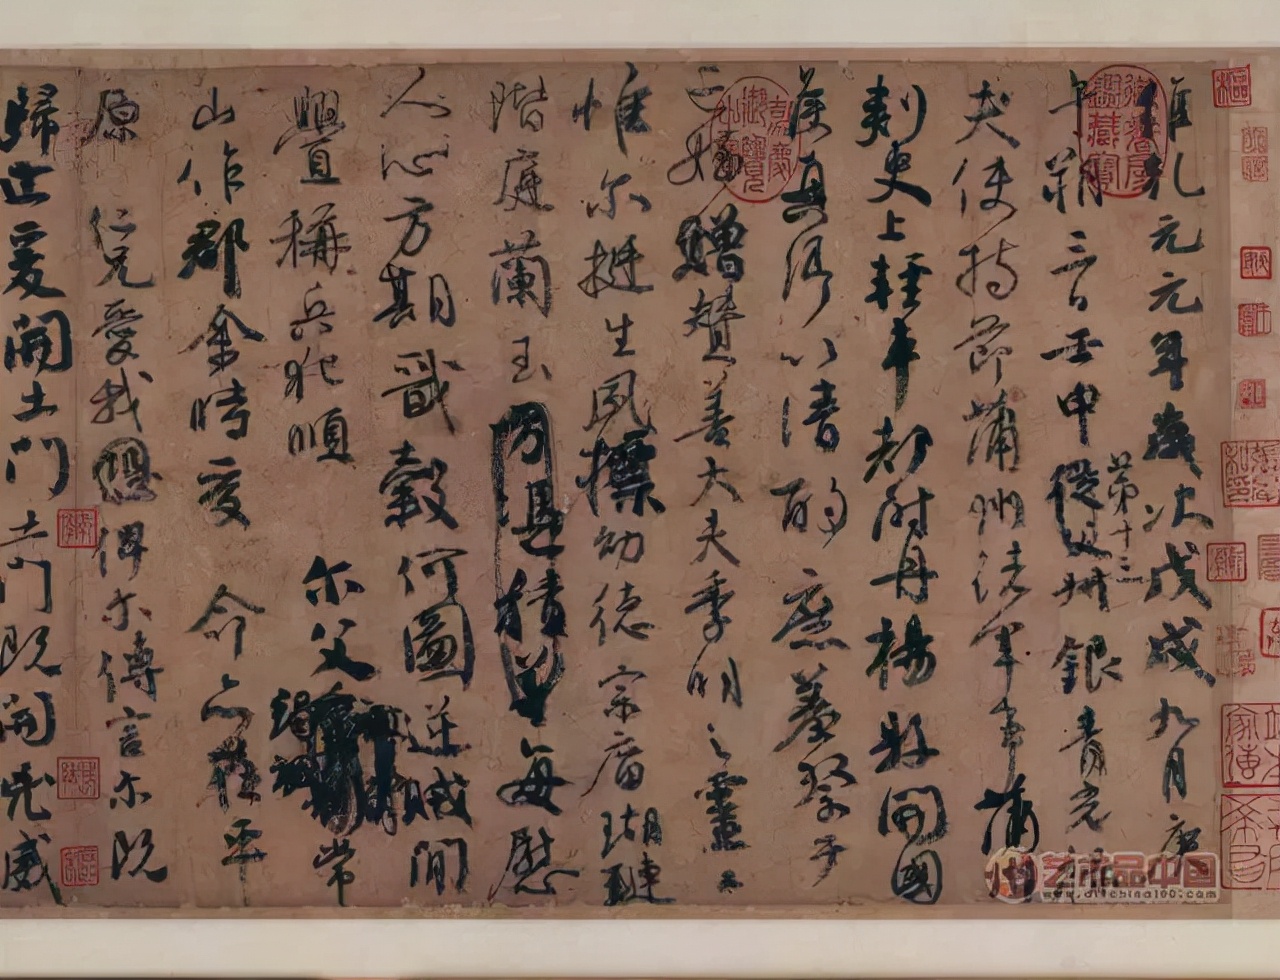 維乾元元年歲次戊戌九月庚
午朔三日壬申第十三從父叔銀青光祿
夫使持節蒲州諸軍事蒲州
刺史上輕車都尉丹楊縣開國
侯真卿以清酌庶羞祭于
亡姪贈贊善大夫季明之靈曰
惟爾挺生夙標幼德宗廟瑚璉
階庭蘭玉方憑積善每慰
人心方期戩穀何圖逆賊間
舋稱兵犯順爾父竭誠常
山作郡余時受命亦在平
原仁兄愛我恐俾爾傳言爾既
歸止爰開土門土門既開凶威
艺术品中国